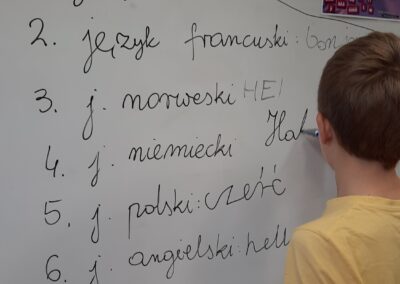 2. język francuski: bonjo
3. j. norweski HEI
4. j. niemiecki Hal
5. j. polski: cześć
6. j. angielski: hell